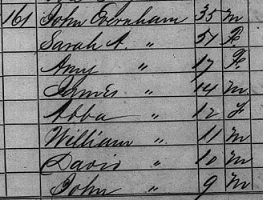 161 John Evernham 35 M
Sarah A. " 51 F
Amy " 17 F
James " 14 M
Abba " 12 F
William " 11 M
Davis " 10 M
John " 9 M